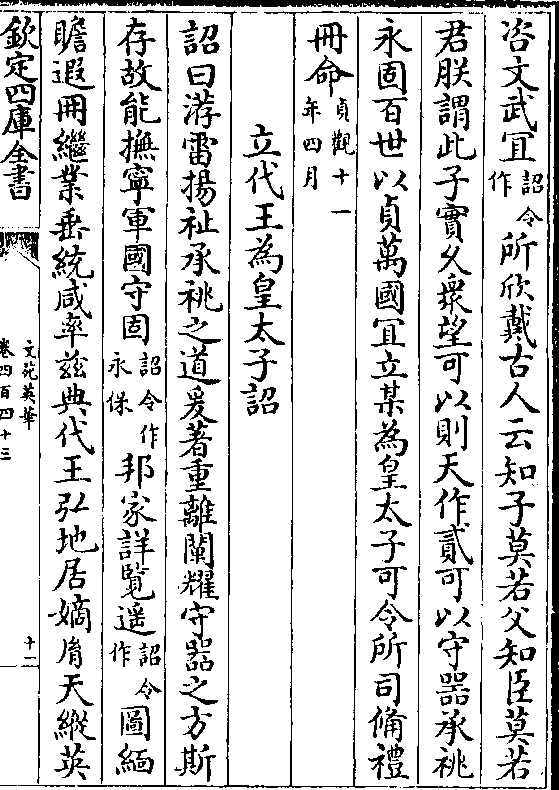 咨文武冝詔令作所欣戴古人云知子莫若父知臣莫若
君朕謂此子實乆衆望可以則天作貳可以守器承祧
永固百世以貞萬國冝立某為皇太子可令所司僃禮
冊命貞觀十一年四月
立代王為皇太子詔
詔曰游雷揚祉承祧之道爰著重離闡耀守器之方斯
存故能撫寧軍國守固詔令作永保邦家詳覧遥詔令作圖緬
瞻遐冊繼業垂統咸率兹典代王弘地居嫡胤天縱英
欽定四庫全書
文苑英華
卷四百四十三
十二